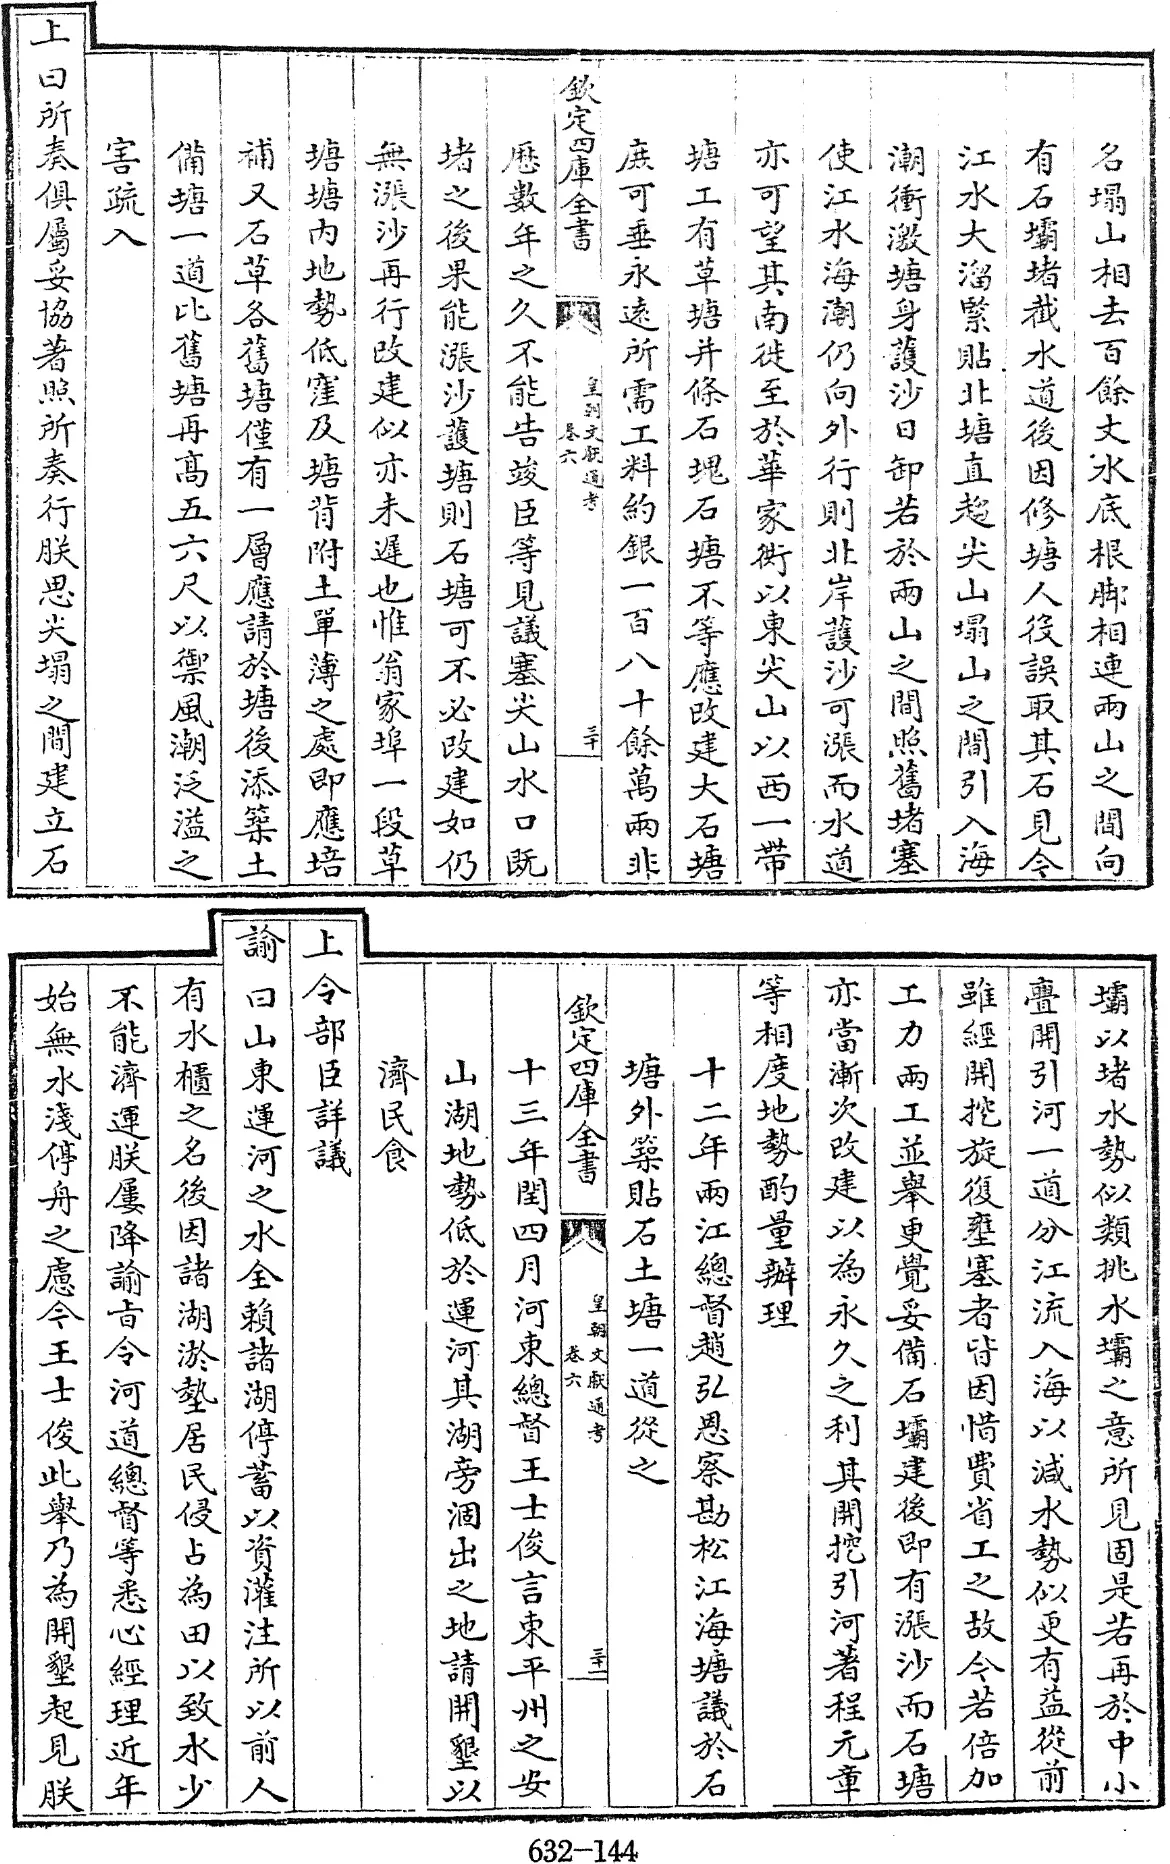 名塌山相去百餘丈水底根脚相連兩山之間向
有石壩堵截水道後因修塘人役誤取其石見今
江水大溜緊貼北塘直趨尖山塌山之間引入海
潮衝激塘身護沙日卸若於兩山之間照舊堵塞
使江水海潮仍向外行則北岸護沙可漲而水道
亦可望其南徙至於華家衖以東尖山以西一帶
塘工有草塘并條石塊石塘不等應改建大石塘
庶可垂永遠所需工料約銀一百八十餘萬兩非
欽定四庫全書
皇朝文獻通考
卷六
三十
歷數年之久不能告竣臣等見議塞尖山水口既
堵之後果能漲沙護塘則石塘可不必改建如仍
無漲沙再行改建似亦未遲也惟翁家埠一段草
塘塘内地勢低窪及塘背附土單薄之處即應培
補又石草各舊塘僅有一層應請於塘後添築土
備塘一道比舊塘再高五六尺以禦風潮泛溢之
害疏入
上曰所奏俱屬妥協著照所奏行朕思尖塌之間建立石
壩以堵水勢似類挑水壩之意所見固是若再於中小
亹開引河一道分江流入海以減水勢似更有益從前
雖經開挖旋復壅塞者皆因惜費省工之故今若倍加
工力兩工並舉更覺妥備石壩建後即有漲沙而石塘
亦當漸次改建以為永久之利其開挖引河著程元章
等相度地勢酌量辦理
十二年兩江總督趙弘恩察勘松江海塘議於石
塘外築貼石土塘一道從之
欽定四庫全書
皇朝文獻通考
卷六
三十一
十三年閏四月河東總督王士俊言東平州之安
山湖地勢低於運河其湖旁涸出之地請開墾以
濟民食
上令部臣詳議
諭曰山東運河之水全賴諸湖停蓄以資灌注所以前人
有水櫃之名後因諸湖淤墊居民侵占為田以致水少
不能濟運朕屢降諭旨令河道總督等悉心經理近年
始無水淺停舟之慮今王士俊此舉乃為開墾起見朕
632-144